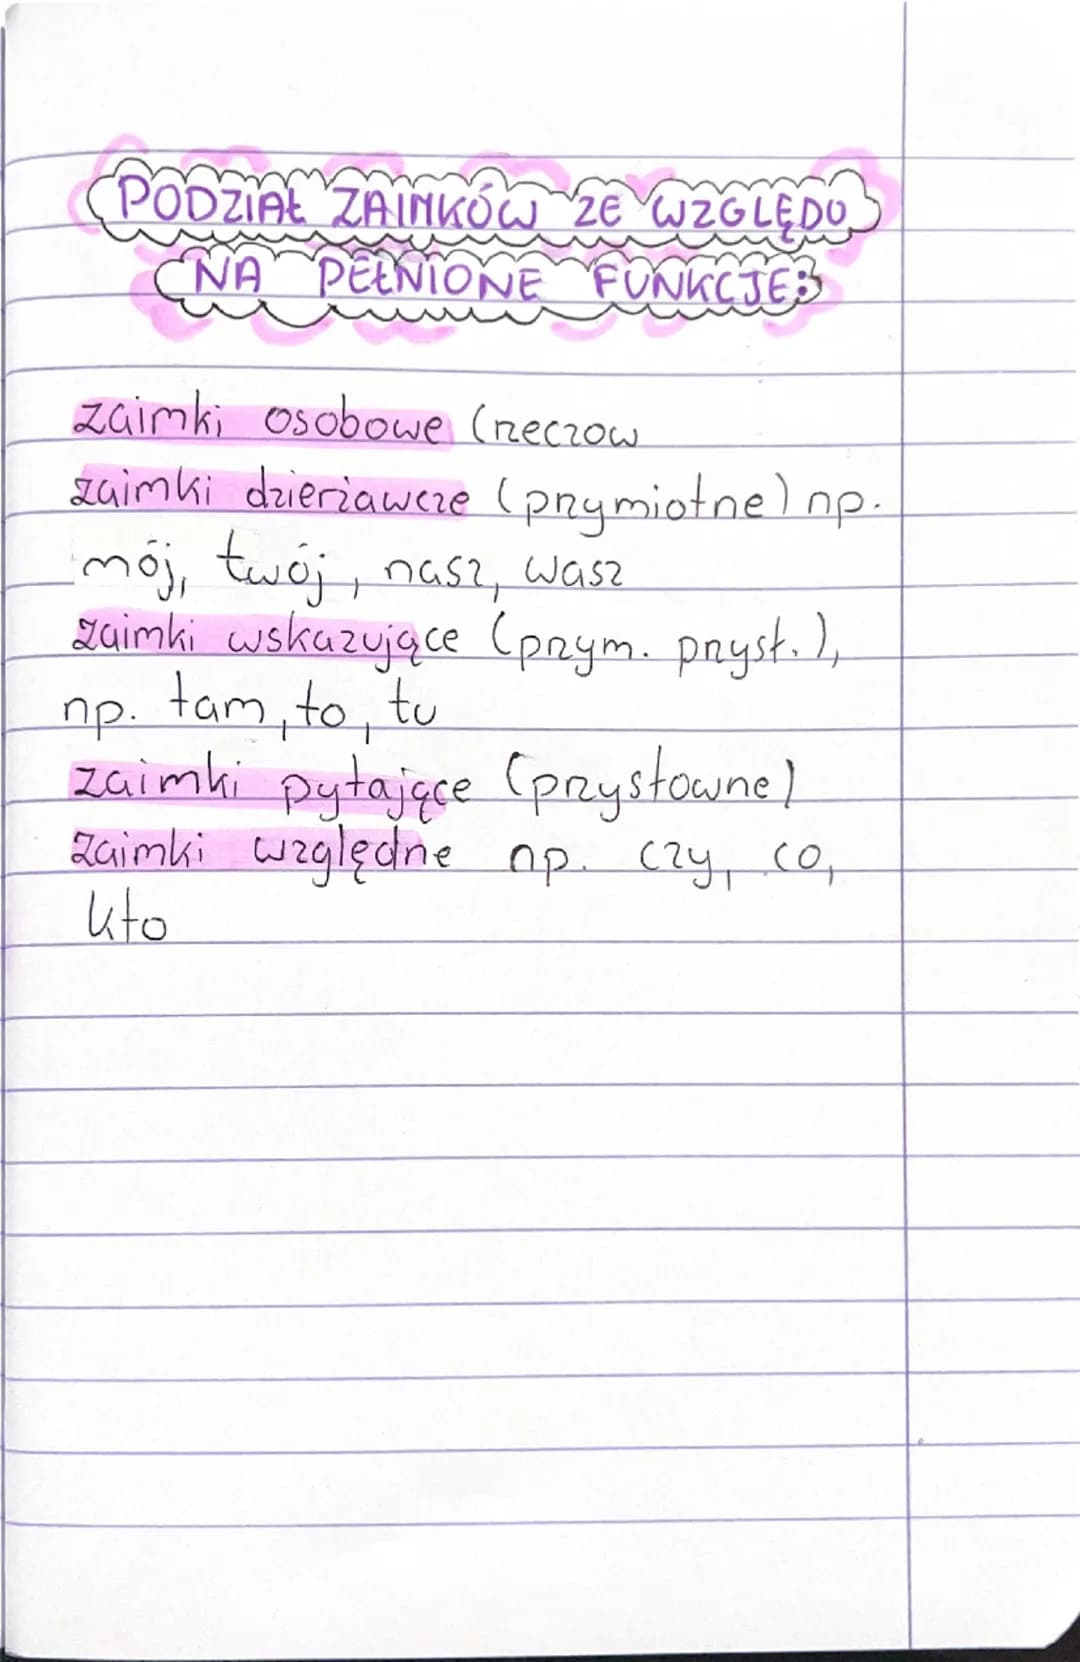 PODZIAŁ ZAIMKÓW ZE WZGLĘDU
NA PEŁNIONE FUNKCJE:
zaimki osobowe (rzeczow
zaimki dzierżawcze (przymiotne) np.
mój, twój, nasz, wasz
zaimki wskazujące (przym. przysł.),
np. tam, to, tu
zaimki pytające (przysłowne)
zaimki względne np. czy, co,
kto